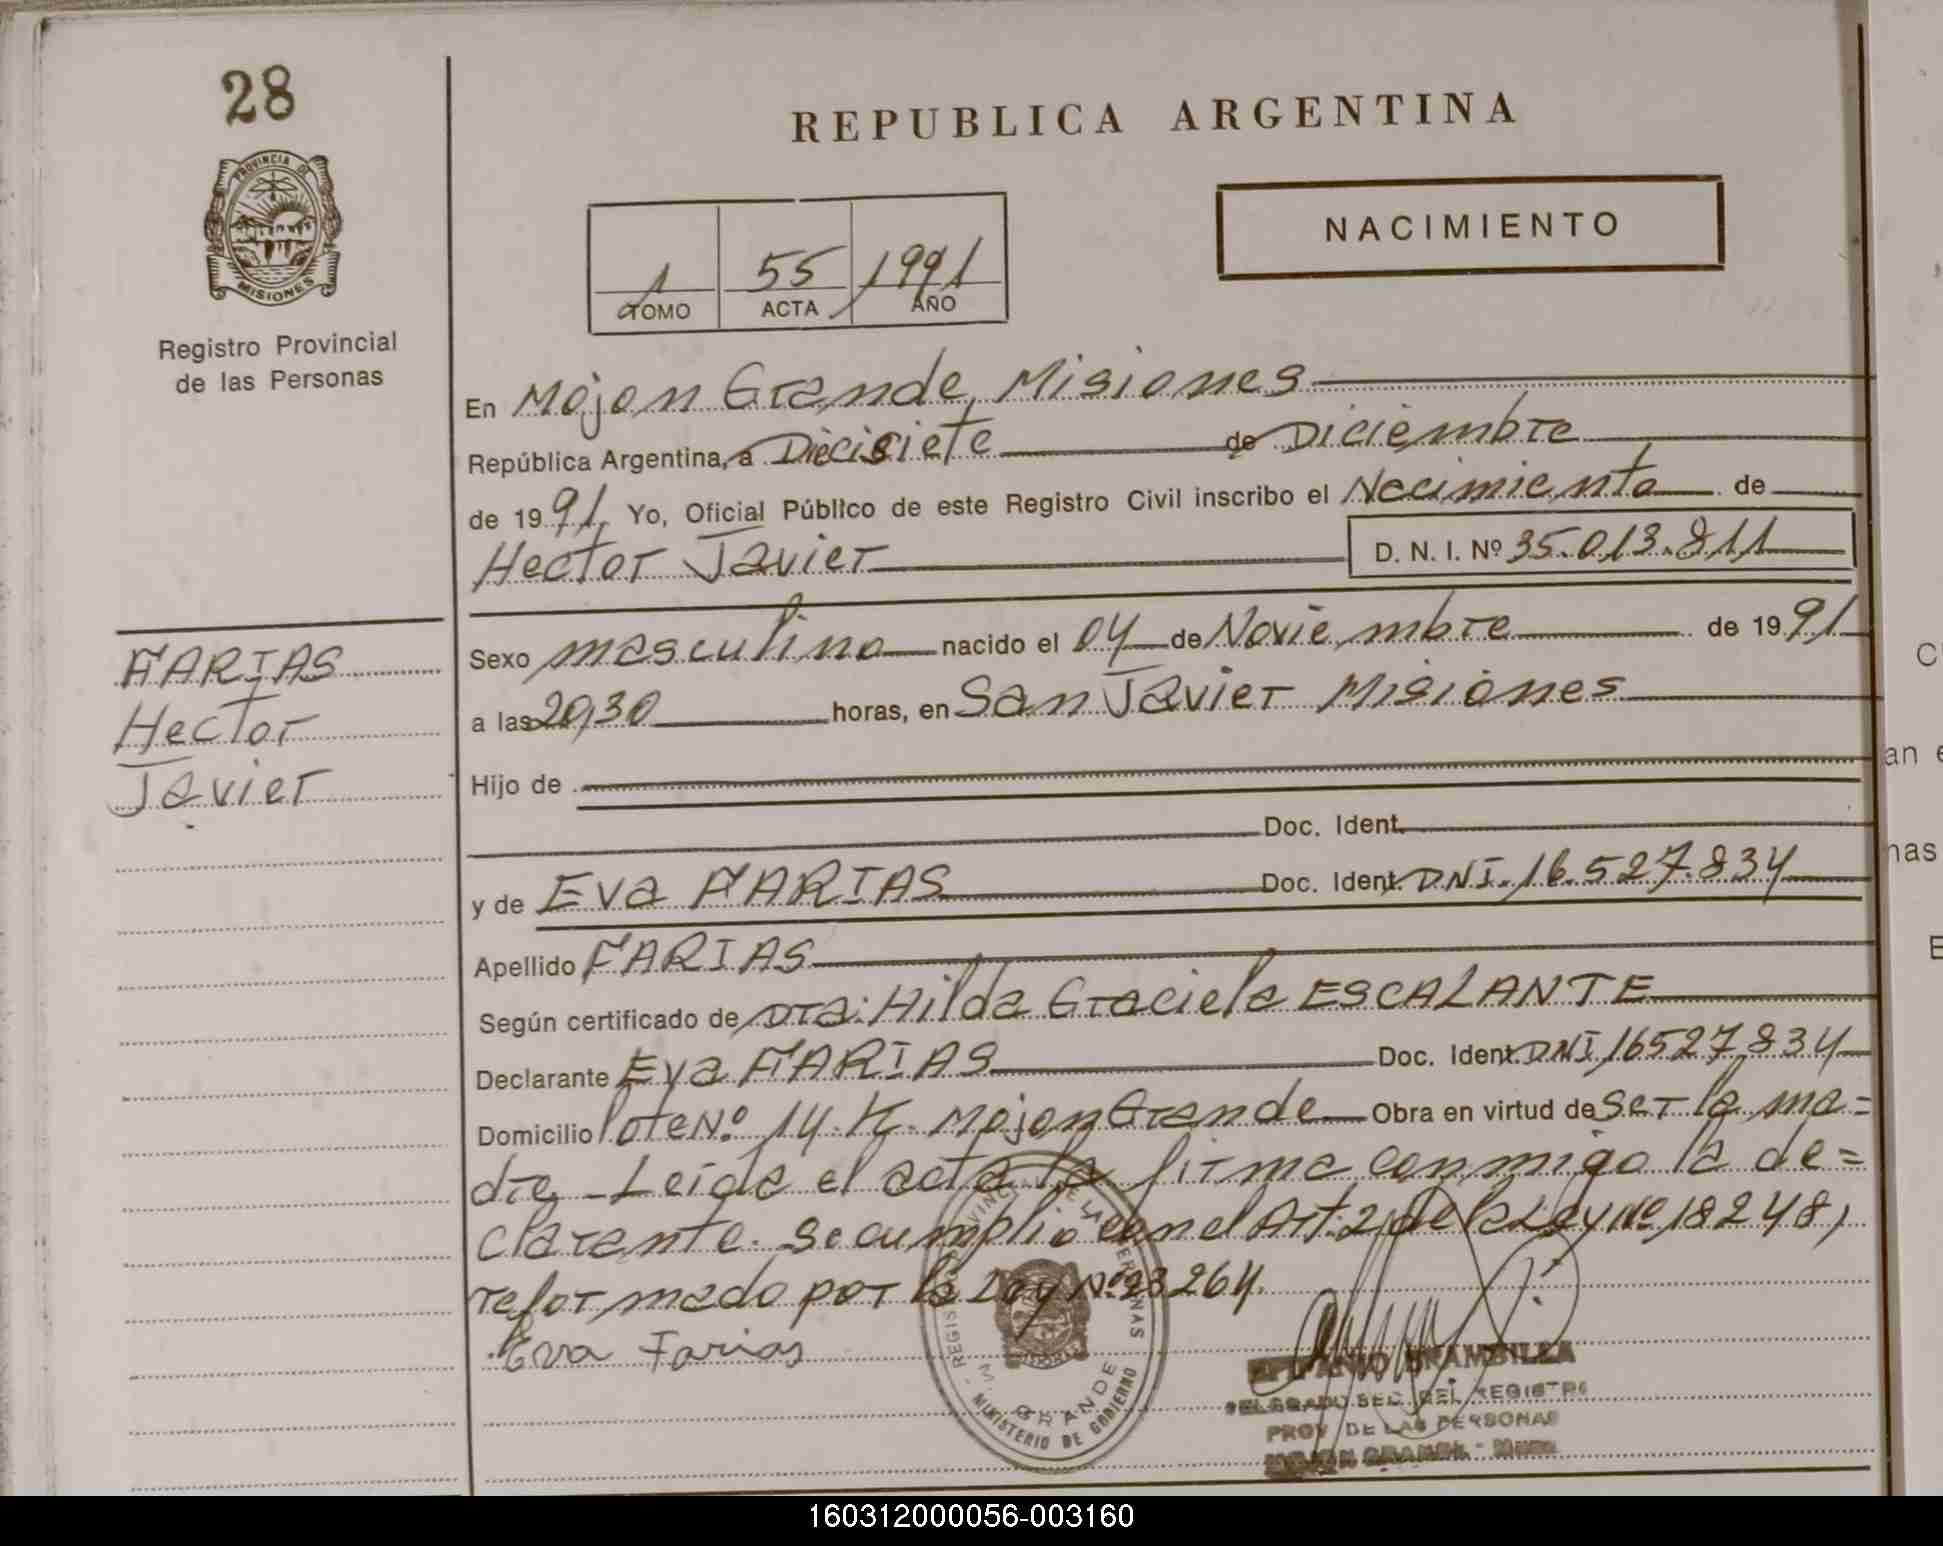 28
REPUBLICA ARGENTINA
PROVINCIA DE
MISIONES
NACIMIENTO
1 55 1991
TOMO ACTA AÑO
Registro Provincial
de las Personas
En Mojon Grande, Misiones
República Argentina, a Diecisiete de Diciembre
de 1991, Yo, Oficial Público de este Registro Civil inscribo el Nacimiento de
Hector Javier D. N. I. Nº 35.013.811
FARIAS
Hector
Javier
Sexo masculino nacido el 04 de Noviembre de 1991
a las 20,30 horas, en San Javier Misiones
Hijo de
Doc. Ident.
y de Eva FARIAS Doc. Ident. DNI. 16.527.834
Apellido FARIAS
Según certificado de Dra: Hilda Graciela ESCALANTE
Declarante Eva FARIAS Doc. Ident. DNI 16527834
Domicilio lote Nº 14. K. Mojon Grande Obra en virtud de ser la ma=
dre - Leida el acta la firma conmigo la de=
clarante. Se cumplio con el Art. 2 de la Ley Nº 18248,
reformado por la Ley Nº 23264.
Eva Farias
MINISTERIO DE GOBIERNO
GRANDE
BRAMBILLA
DEL REGISTRO
PROV DE LAS PERSONAS
MOJON GRANDE - Mnes
an e
nas
160312000056-003160